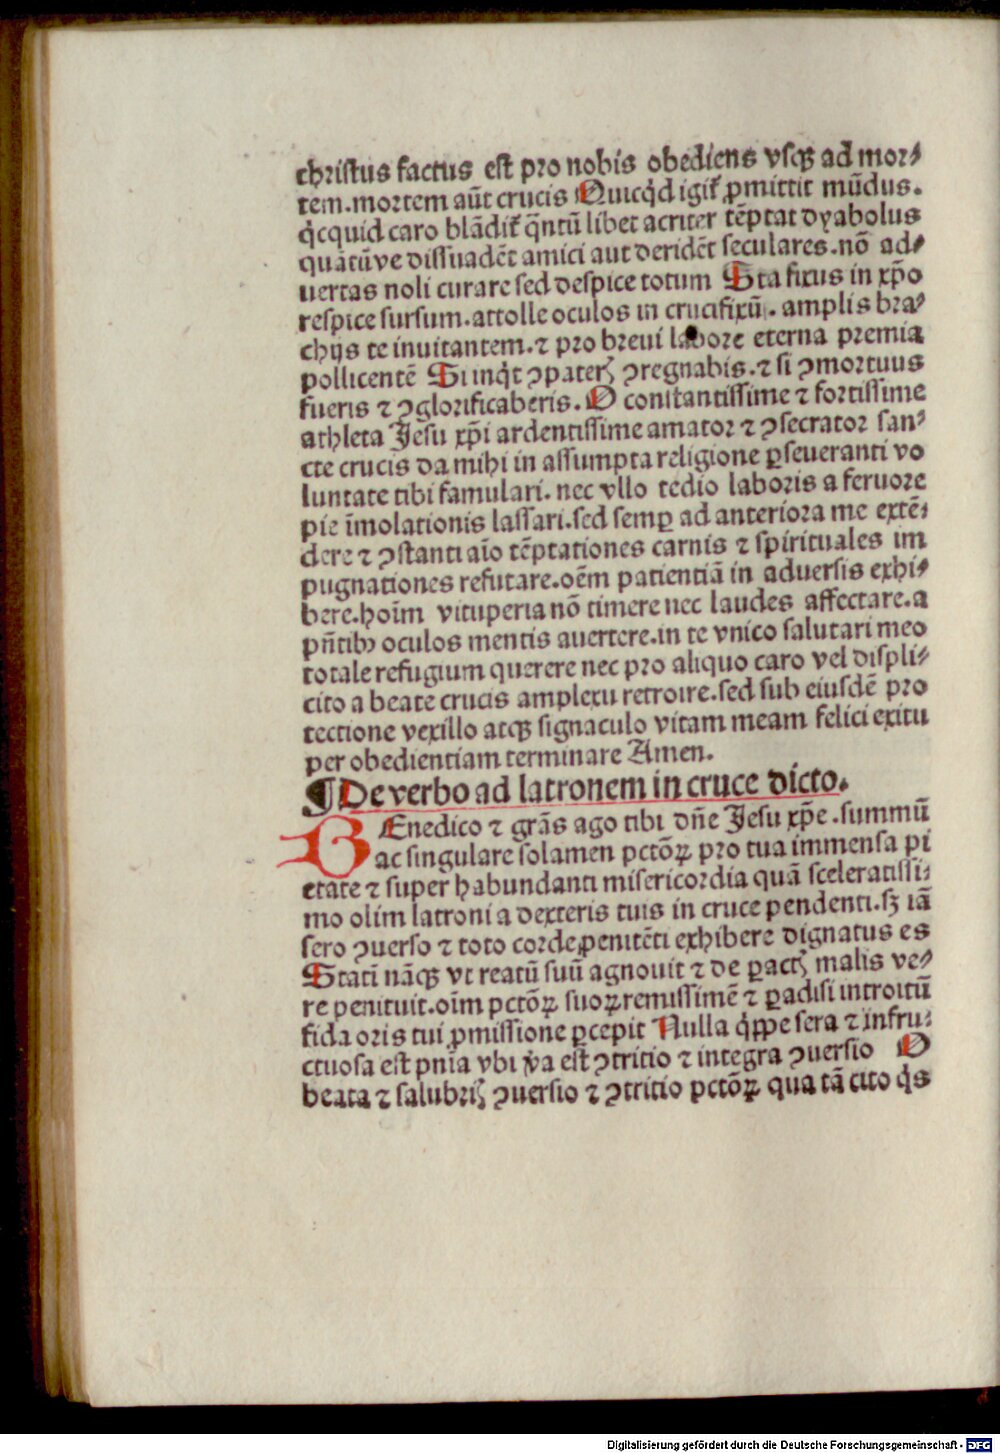 christus factus est pro nobis obediens vsqꝫ ad mor⸗
tem.mortem aūt crucis Quicq̇d igit᷑ ꝓmittit mūdus.
q̇cquid caro blādit᷑ q̄ntū libet acriter tēptat dyabolus
quātūve dissuadēt amici aut deridēt seculares.nō ad⸗
uertas noli curare sed despice totum Sta fixus in xp̄o
respice sursum.attolle oculos in crucifixū. amplis bra⸗
chijs te inuitantem.⁊ pro breui labore eterna premia
pollicentē Si inq̇t ꝯpateris ꝯregnabis.⁊ si ꝯmortuus
fueris ⁊ ꝯglorificaberis. O constantissime ⁊ fortissime
athleta Jesu xp̄i ardentissime amator ⁊ ꝯsecrator san⸗
cte crucis da mihi in assumpta religione ꝑseueranti vo
luntate tibi famulari. nec vllo tedio laboris a feruore
pie īmolationis lassari.sed semꝑ ad anteriora me extē⸗
dere ⁊ ꝯstanti aīo tēptationes carnis ⁊ spirituales im
pugnationes refutare.oēm patientiā in aduersis exhi⸗
bere.hoīm vituperia nō timere nec laudes affectare.a
pn̄tibꝰ oculos mentis auertere.in te vnico salutari meo
totale refugium querere nec pro aliquo caro vel displi⸗
cito a beate crucis amplexu retroire.sed sub eiusdē pro
tectione vexillo atqꝫ signaculo vitam meam felici exitu
per obedientiam terminare Amen.
¶De verbo ad latronem in cruce dicto.
BEnedico ⁊ grās ago tibi dn̄e Jesu xp̄e .summū
ac singulare solamen pctōꝝ pro tua immensa pi
etate ⁊ super habundanti misericordia quā sceleratissi⸗
mo olim latroni a dexteris tuis in cruce pendenti.sꝫ iā
sero ꝯuerso ⁊ toto corde penitēti exhibere dignatus es
Statī nāqꝫ vt reatū suū agnouit ⁊ de ꝑactis malis ve⸗
re penituit.oīm pctōꝝ suoꝝ remissimē ⁊ ꝑadisi introitū
fida oris tui ꝓmissione ꝑcepit Nulla q̇ppe sera ⁊ infru⸗
ctuosa est pn̄ia vbi v̓a est ꝯtritio ⁊ integra ꝯuersio O
beata ⁊ salubris ꝯuersio ⁊ ꝯtritio pctōꝝ qua tā cito q̇s
Digitalisierung gefördert durch die Deutsche Forschungsgemeinschaft - DFG